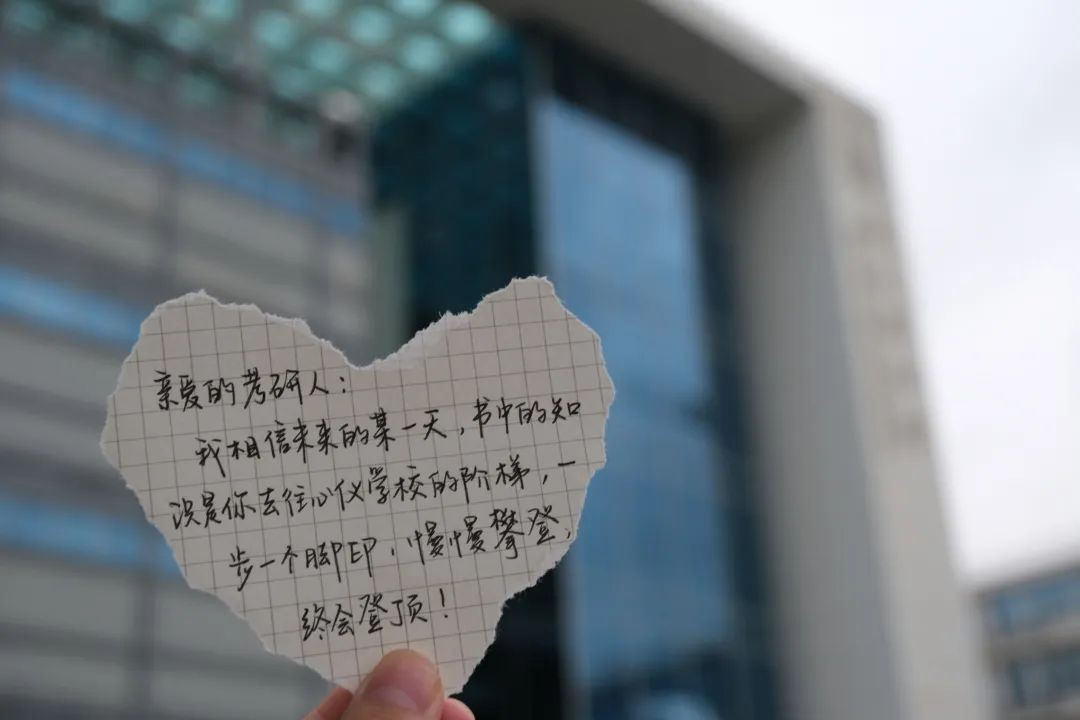 亲爱的考研人：
我相信未来的某一天，书中的知
识是你去往心仪学校的阶梯，一
步一个脚印，慢慢攀登，
终会登顶！